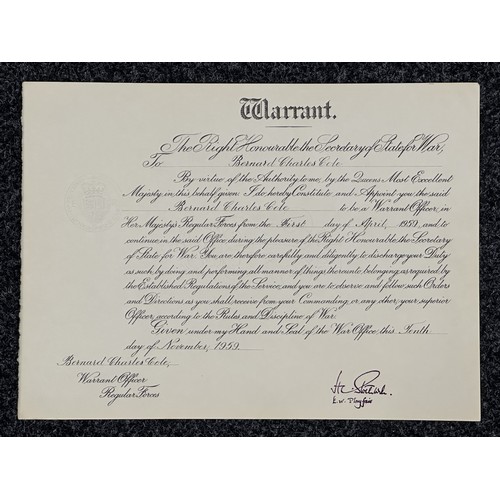 Warrant.
The Right Honourable the Secretary of State for War,
To Bernard Charles Cole
By virtue of the Authority to me, by the Queens Most Excellent
Majesty, in this behalf given I do hereby Constitute and Appoint you the said
Bernard Charles Cole to be a Warrant Officer, in
Her Majesty's Regular Forces from the First day of April, 1959, and to
continue in the said Office during the pleasure of the Right Honourable the Secretary
of State for War. You are therefore carefully and diligently to discharge your Duty
as such by doing and performing all manner of things thereunto belonging, as required by
the Established Regulations of the Service, and you are to observe and follow such Orders
and Directions as you shall receive from your Commanding, or any other, your superior
Officer, according to the Rules and Discipline of War.
Given under my Hand and Seal of the War Office this Tenth
day of November, 1959.
Bernard Charles Cole,
Warrant Officer
Regular Forces
E.W. Playfair